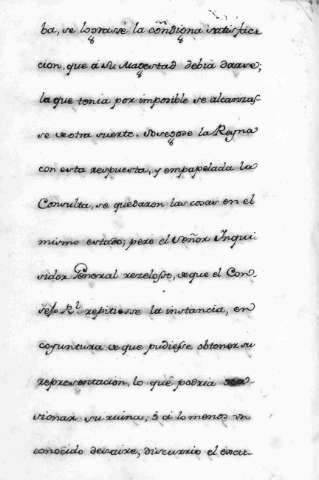 ba, se lograsse la condigna satisfac-
cion, que á su Magestad debia darse;
la que tenia por imposible se alcanzas-
se de otra suerte. Sosegose la Reyna
con esta respuesta, y empapelada la
Consulta, se quedaron las cosas en el
mismo estado; pero el Señor Inqui-
sidor General rezelosse, de que el Con-
sejo Rl. repitiesse la instancia, en
coyuntura de que pudiesse obtener su
representacion, lo que podria
sionar su ruina, ó á lo menos un
conocido desaire, discurrio el